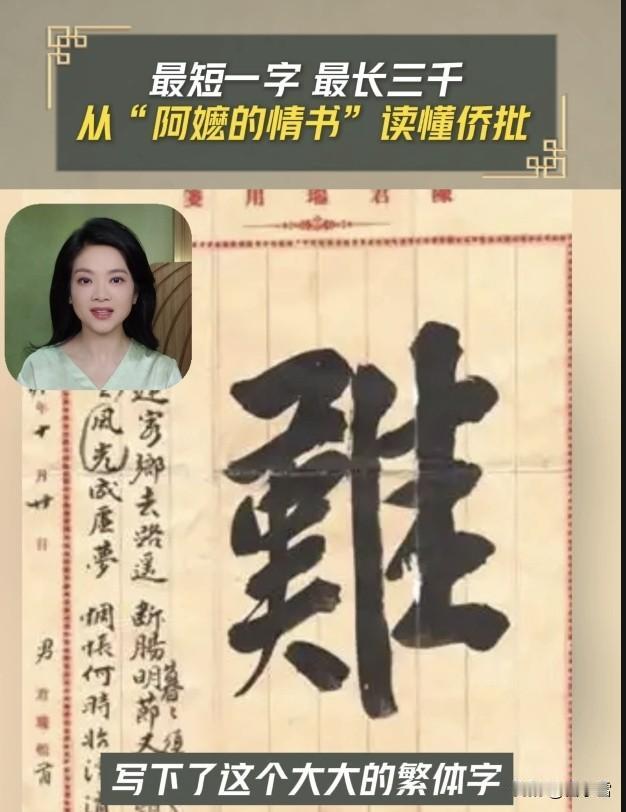 最短一字 最长三千
从“阿嬷的情书”读懂侨批
陳君瑞用箋
難
家鄉去路遥 斷腸明節又
風光成虛夢 惆悵何時
年十月廿日 男君瑞
写下了这个大大的繁体字